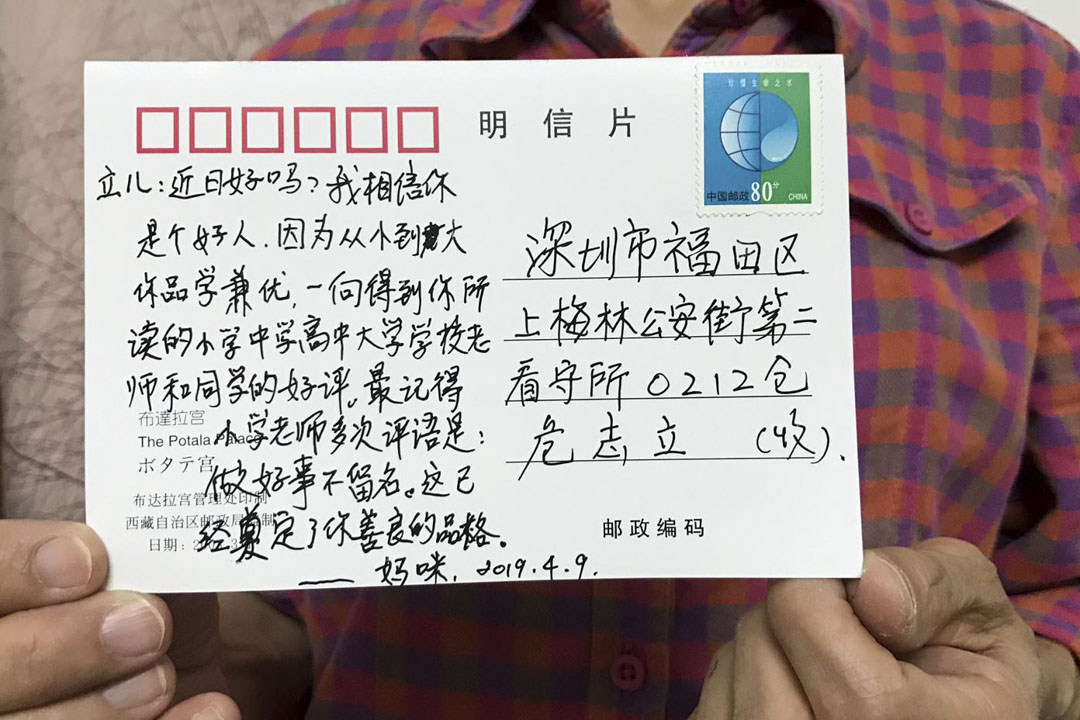 明信片
珍惜生命之水
中国邮政 80分 CHINA
立儿：近日好吗？我相信你
是个好人，因为从小到大
你品学兼优，一向得到你所
读的小学中学高中大学学校老
师和同学的好评。最记得
小学老师多次评语是：
做好事不留名。这已
经奠定了你善良的品格。
—— 妈咪，2019.4.9.
深圳市福田区
上梅林公安街第二
看守所0212仓
危志立（收）.
布達拉宫
The Potala Palace
ボタテ宫
布达拉宫管理处印制
西藏自治区邮政局
日期：2
邮政编码